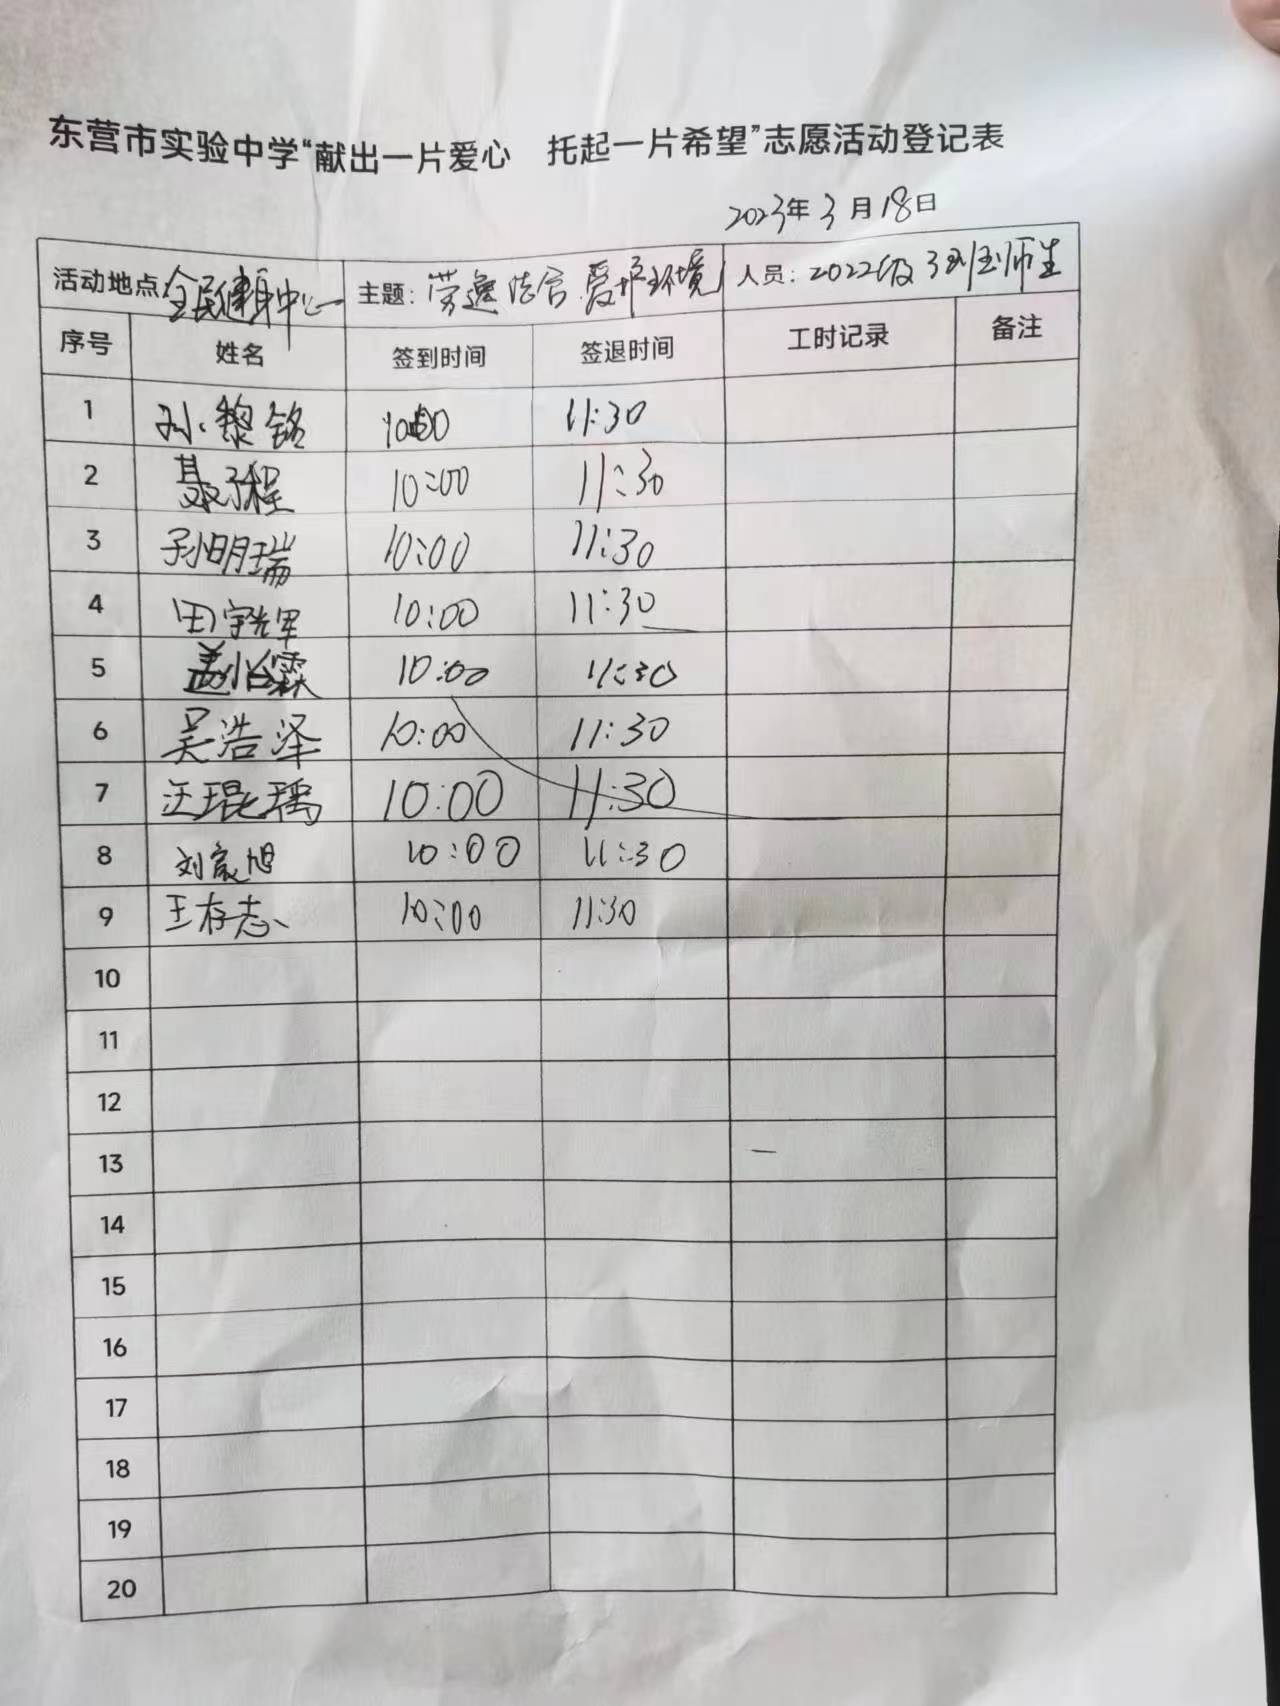 东营市实验中学“献出一片爱心 托起一片希望”志愿活动登记表
2023年3月18日
活动地点 全民健身中心 主题：劳逸结合 爱护环境 人员：2022级3班师生
序号 姓名 签到时间 签退时间 工时记录 备注
1 孙黎铭 10:00 11:30
2 聂子程 10:00 11:30
3 孙明瑞 10:00 11:30
4 田宇光军 10:00 11:30
5 盖怡霖 10:00 11:30
6 吴浩泽 10:00 11:30
7 王琨瑀 10:00 11:30
8 刘家旭 10:00 11:30
9 王存志 10:00 11:30
10
11
12
13
14
15
16
17
18
19
20